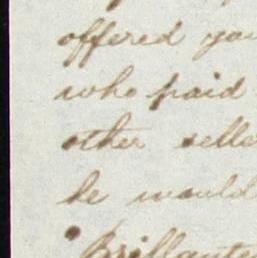 offered you
who paid
other selle
he would
Brillante